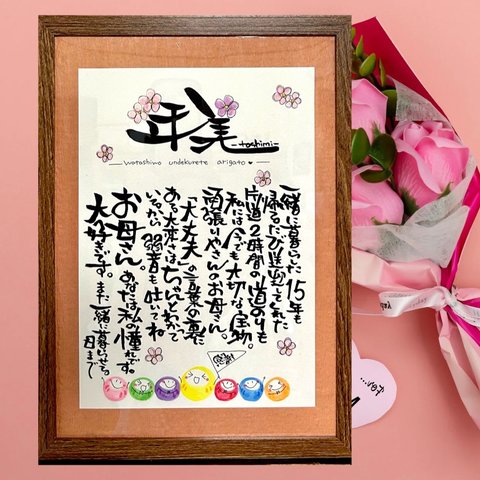 年美
-toshimi-
watashiwo undekurete arigato
一緒に暮らした15年も
帰るたび送迎してくれた
片道2時間の道のりも
私には今でも大切な宝物。
頑張りやさんのお母さん。
「大丈夫」の言葉の裏に
ある大変さはちゃんとわかって
いるから弱音も吐いてね
お母さん。あなたは私の憧れです。
大好きです。また一緒に暮らせる
日まで
感謝!